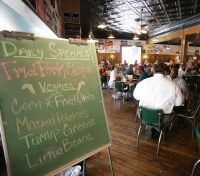 Daily Specials
Fried Pork Chops
Veggies
Corn * Fried Okra
Mashed Potatoes
Turnip Greens
Lima Beans